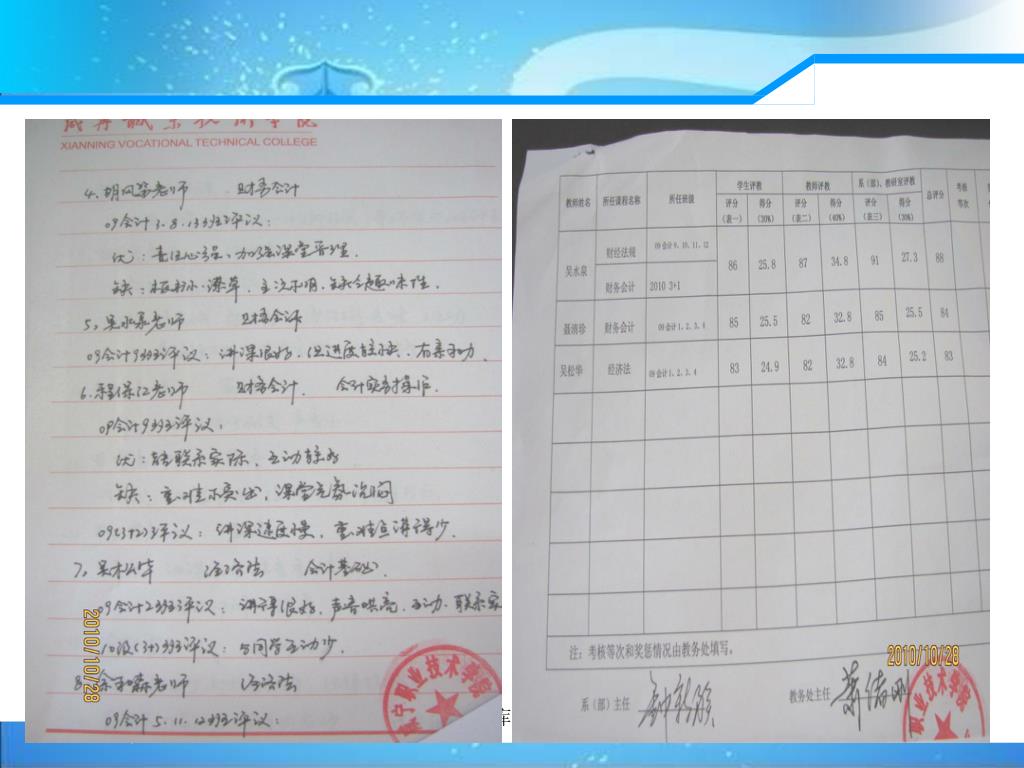 咸宁职业技术学院
XIANNING VOCATIONAL TECHNICAL COLLEGE
4.胡凤第老师 财务会计
09会计3.8.13班评议：
优：责任心强、加强课堂管理.
缺：板书小.潦草, 主次不明.缺乏趣味性.
5、吴水泉老师 财务会计
09会计9班评议：讲课很好, 但进度较快、有亲和力.
6.程保江老师 财务会计. 会计实务操作.
09会计9班评议：
优：能联系实际, 互动较好
缺：重难不突出, 课堂气氛沉闷
09(3+2)评议：讲课速度慢, 重难点讲得少.
7、吴松华 经济法 会计基础.
09会计2班评议：讲课很好, 声音洪亮, 互动.联系实
10级(3+1)班评议：与同学互动少.
8.余和森老师 经济法
09会计5.11.12班评议：
咸宁职业技术学院
2010/10/28
教师姓名 所任课程名称 所任班级 学生评教 教师评教 系（部）、教研室评教 总评分 考核等次
评分（表一） 得分（30%） 评分（表二） 得分（40%） 评分（表三） 得分（30%）
吴水泉 财经法规 09会计9、10、11、12 86 25.8 87 34.8 91 27.3 88
财务会计 2010 3+1
聂清珍 财务会计 09会计1、2、3、4 85 25.5 82 32.8 85 25.5 84
吴松华 经济法 09会计1、2、3、4 83 24.9 82 32.8 84 25.2 83
注：考核等次和奖惩情况由教务处填写。
2010/10/28
系（部）主任
教务处主任
职业技术学院
库